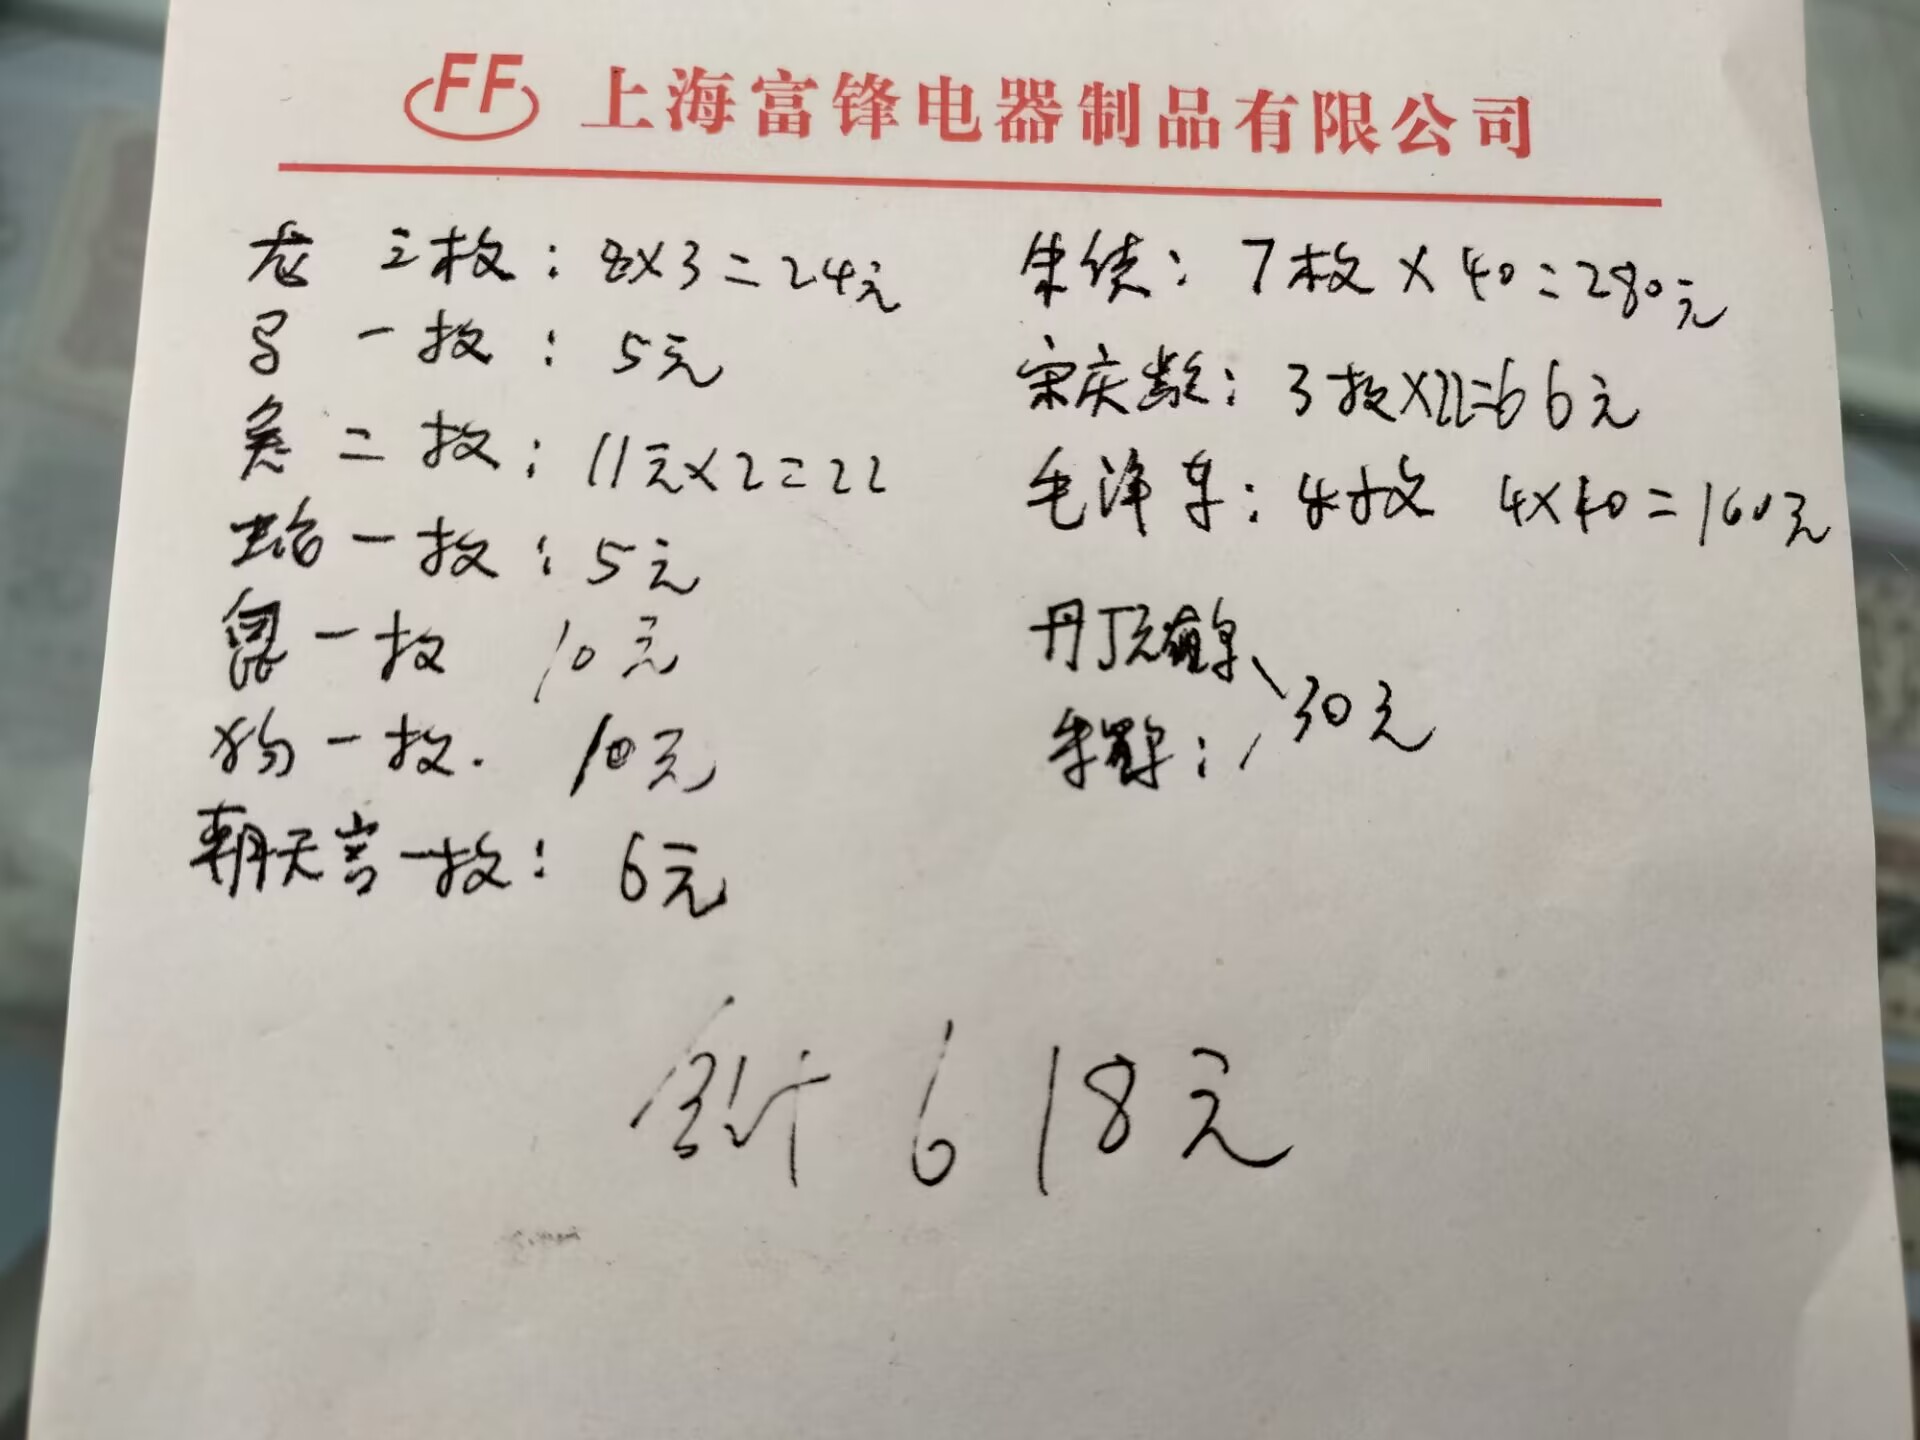 FF 上海富锋电器制品有限公司
龙 三枚：8×3=24元
马 一枚：5元
兔 二枚：11元×2=22
蛇一枚：5元
鼠一枚 10元
狗一枚. 10元
朝天宫一枚：6元
朱德：7枚×40=280元
宋庆龄：3枚×22=66元
毛泽东：4枚 4×40=160元
丹顶
30元
合计 618元